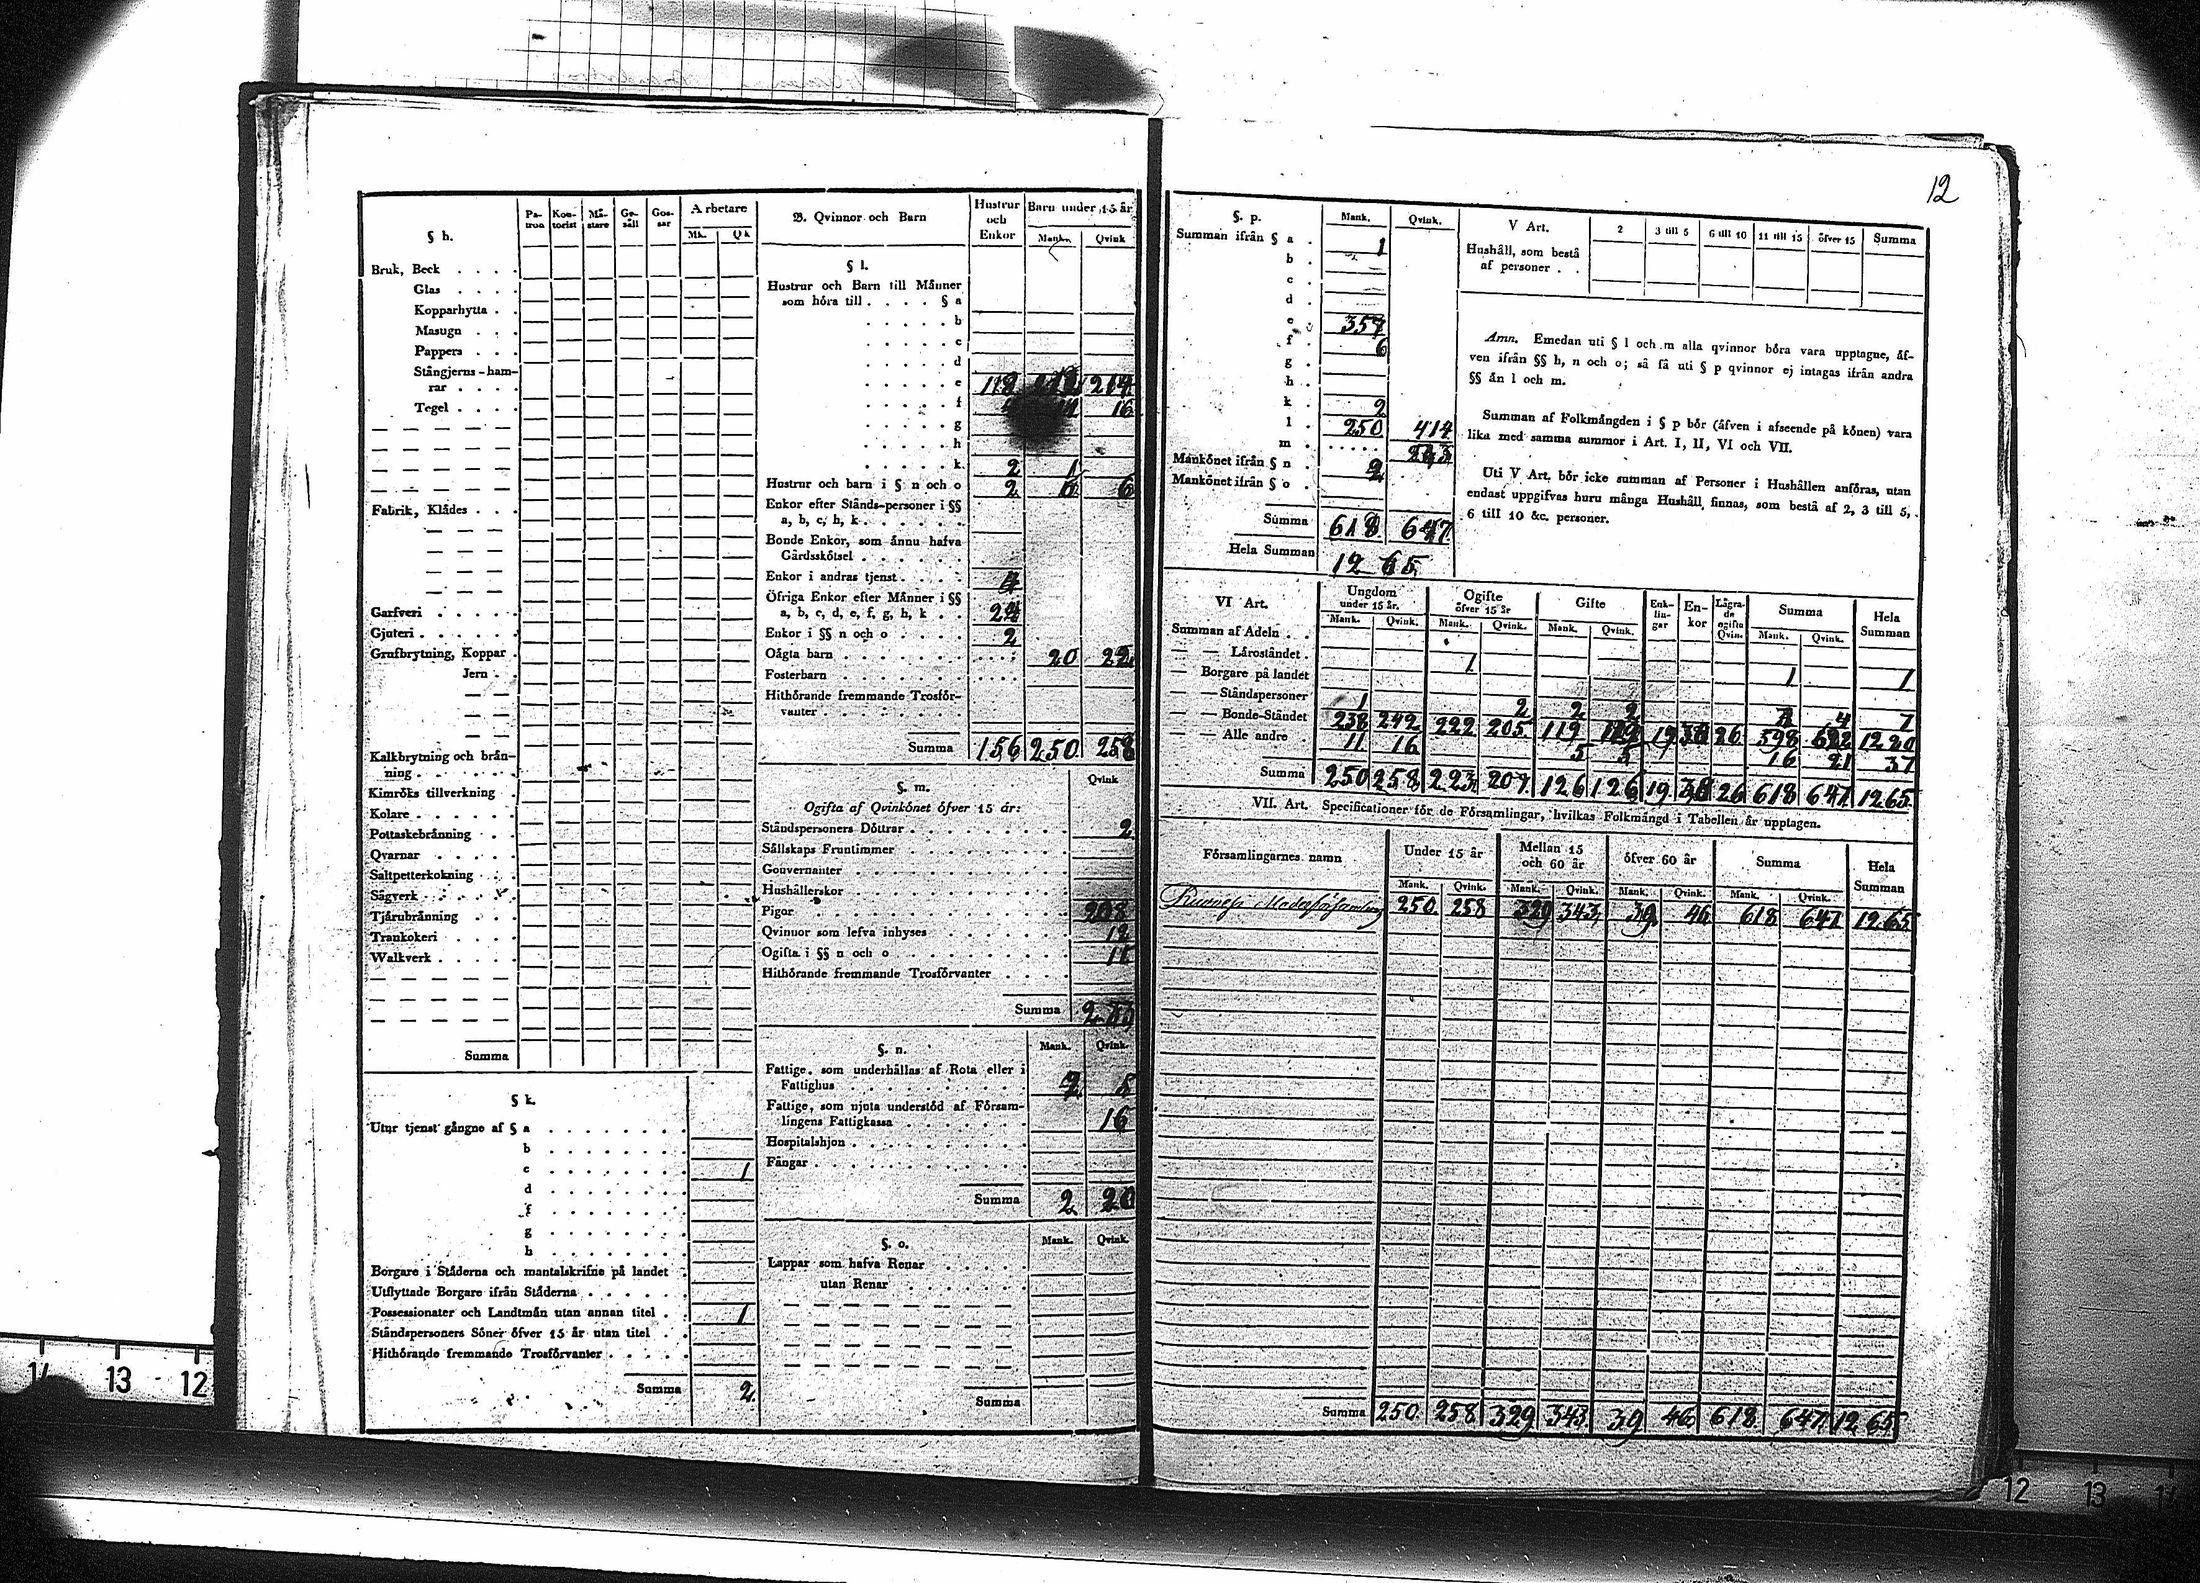 12
§ h.
Pa-tron Kon-torist Mä-stare Ge-säll Gos-sar Arbetare
Mk. Qk
Bruk, Beck . . . .
Glas . . . .
Kopparhytta . .
Masugn . . .
Pappers . . .
Stångjerns-ham-
rar . . . .
Tegel . . . .
Fabrik, Klädes . . .
Garfveri . . . . .
Gjuteri . . . . .
Grufbrytning, Koppar .
Jern . .
Kalkbrytning och brän-
ning . . . . . .
Kimröks tillverkning .
Kolare . . . . .
Pottaskebränning . .
Qvarnar . . . . .
Saltpetterkokning . .
Sågverk . . . . .
Tjärubränning . . .
Trankokeri . . . .
Walkverk . . . . .
Summa
§ k.
Utur tjenst gångne af § a . . . . . . .
b . . . . . . .
c . . . . . . . 1
d . . . . . . .
f . . . . . . .
g . . . . . . .
h . . . . . . .
Borgare i Städerna och mantalskrifne på landet .
Utflyttade Borgare ifrån Städerna . . . . .
Possessionater och Landtmän utan annan titel . . 1
Ståndspersoners Söner öfver 15 år utan titel . .
Hithörande fremmande Trosförvanter . . . . .
Summa 2
B. Qvinnor och Barn Hustrur och Enkor Barn under 15 år
Mank. Qvink
§ l.
Hustrur och Barn till Männer
som höra till . . . . § a
. . . . . b
. . . . . c
. . . . . d
. . . . . e 119 214
. . . . . f 16
. . . . . g
. . . . . h
. . . . . k 2
Hustrur och barn i § n och o 2 6
Enkor efter Stånds-personer i §§
a, b, c, h, k . . . . .
Bonde Enkor, som ännu hafva
Gårdsskötsel . . . . .
Enkor i andras tjenst . . . . 4
Öfriga Enkor efter Männer i §§
a, b, c, d, e, f, g, h, k . . 24
Enkor i §§ n och o . . . . 2
Oägta barn . . . . . . . 20 22
Fosterbarn . . . . . . .
Hithörande fremmande Trosför-
vanter . . . . . . .
Summa 156 250 258
§. m.
Qvink
Ogifta af Qvinkönet öfver 15 år:
Ståndspersoners Döttrar . . . . . . . . 2
Sällskaps Fruntimmer . . . . . . . . .
Gouvernanter . . . . . . . . . . . .
Hushållerskor . . . . . . . . . . .
Pigor . . . . . . . . . . . . . 208
Qvinnor som lefva inhyses . . . . . . . 12
Ogifta i §§ n och o . . . . . . . . . 11
Hithörande fremmande Trosförvanter . . . .
Summa 233
§. n.
Mank. Qvink.
Fattige, som underhållas af Rota eller i
Fattighus . . . . . . . . . 2
Fattige, som njuta understöd af Försam-
lingens Fattigkassa . . . . . . . 16
Hospitalshjon . . . . . . . . .
Fångar . . . . . . . . . . .
Summa 2 20
§. o.
Mank. Qvink.
Lappar som hafva Renar . . . . .
utan Renar . . . . .
Summa
§. p. Mank. Qvink.
Summan ifrån § a . 1
b .
c .
d .
e . 357
f . 6
g .
h .
k . 2
l . 250 414
m . . . . . . 233
Mankönet ifrån § n . 2
Mankönet ifrån § o .
Summa 618 647
Hela Summan 1265
V Art. 2 3 till 5 6 till 10 11 till 15 öfver 15 Summa
Hushåll, som bestå
af personer . .
Anm. Emedan uti § l och m alla qvinnor böra vara upptagne, äf-
ven ifrån §§ h, n och o; så få uti § p qvinnor ej intagas ifrån andra
§§ än l och m.
Summan af Folkmängden i § p bör (äfven i afseende på könen) vara
lika med samma summor i Art. I, II, VI och VII.
Uti V Art. bör icke summan af Personer i Hushållen anföras, utan
endast uppgifvas huru många Hushåll finnas, som bestå af 2, 3 till 5,
6 till 10 &c. personer.
VI Art. Ungdom under 15 år. Ogifte öfver 15 år Gifte Enk-lin-gar En-kor Lägra-de ogifta Qvin. Summa Hela Summan
Mank. Qvink. Mank. Qvink. Mank. Qvink. Mank. Qvink.
Summan af Adeln . .
— — Läroståndet . 1 1 1
— — Borgare på landet
— — Ståndspersoner 1 2 2 2 4 7
— — Bonde-Ståndet 238 242 222 205 119 119 19 38 26 598 622 1220
— — Alle andre . 11 16 5 5 16 21 37
Summa 250 258 223 207 126 126 19 38 26 618 647 1265
VII. Art. Specificationer för de Församlingar, hvilkas Folkmängd i Tabellen är upptagen.
Församlingarnes namn Under 15 år Mellan 15 och 60 år öfver 60 år Summa Hela Summan
Mank. Qvink. Mank. Qvink. Mank. Qvink. Mank. Qvink.
Moderförsamling 250 258 329 343 39 46 618 647 1265
Summa 250 258 329 343 39 46 618 647 1265
14 13 12
12 13 14